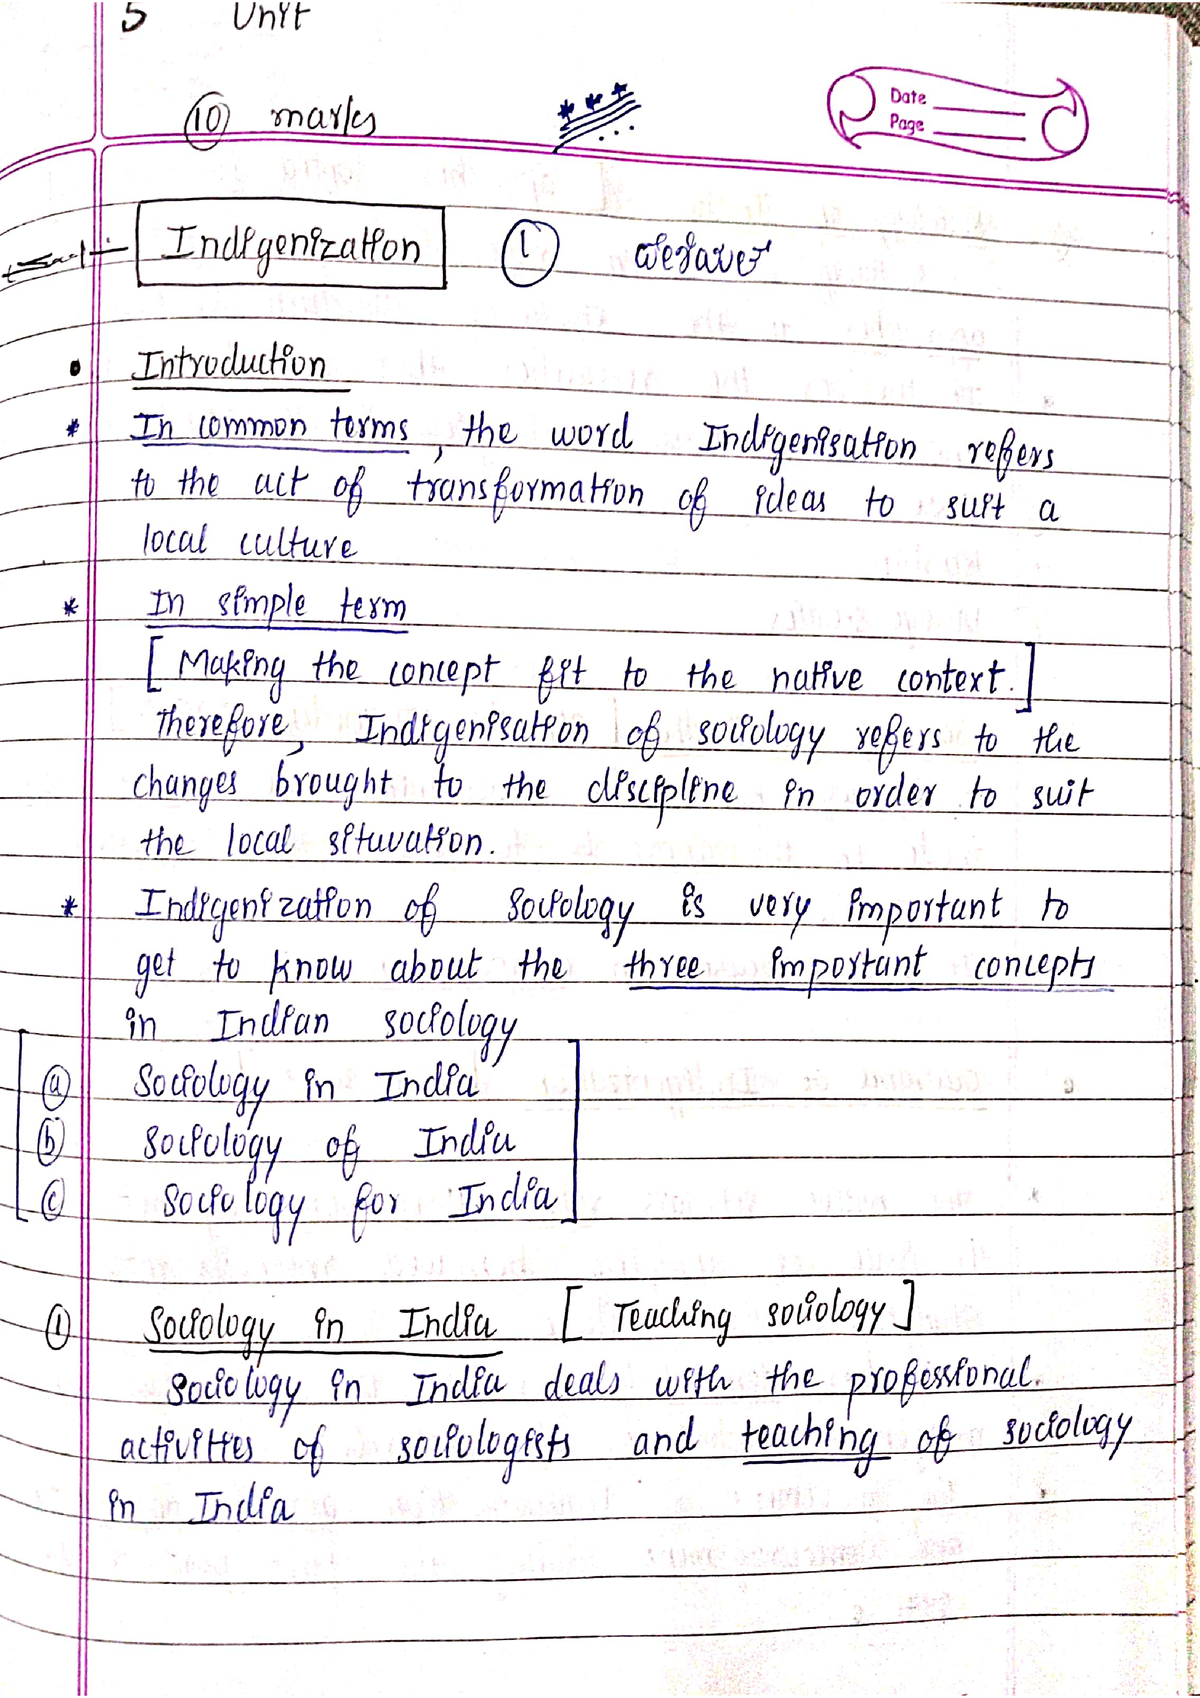 5 Unit
10 marks
Date
Page
Indigenization 1
Introduction
* In common terms, the word Indigenisation refers
to the act of transformation of ideas to suit a
local culture
* In simple term
[ Making the concept fit to the native context. ]
Therefore, Indigenisation of sociology refers to the
changes brought to the discipline in order to suit
the local situvation.
* Indigenization of Sociology is very important to
get to know about the three important concepts
in Indian sociology
a Sociology in India
b Sociology of India
c Sociology for India
1 Sociology in India [ Teaching sociology ]
Sociology in India deals with the professional.
activities of sociologists and teaching of sociology
in India